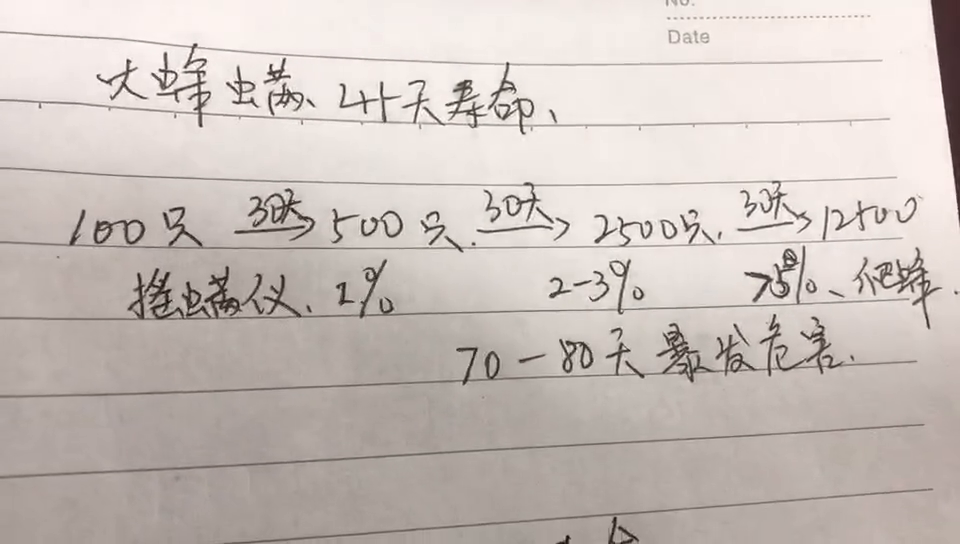 No.
Date
大蜂螨、45天寿命、
100只 30天→ 500只. 30天→ 2500只. 30天→ 12500
摇螨仪、1% 2-3% >5%、爬蜂.
70-80天暴发危害.